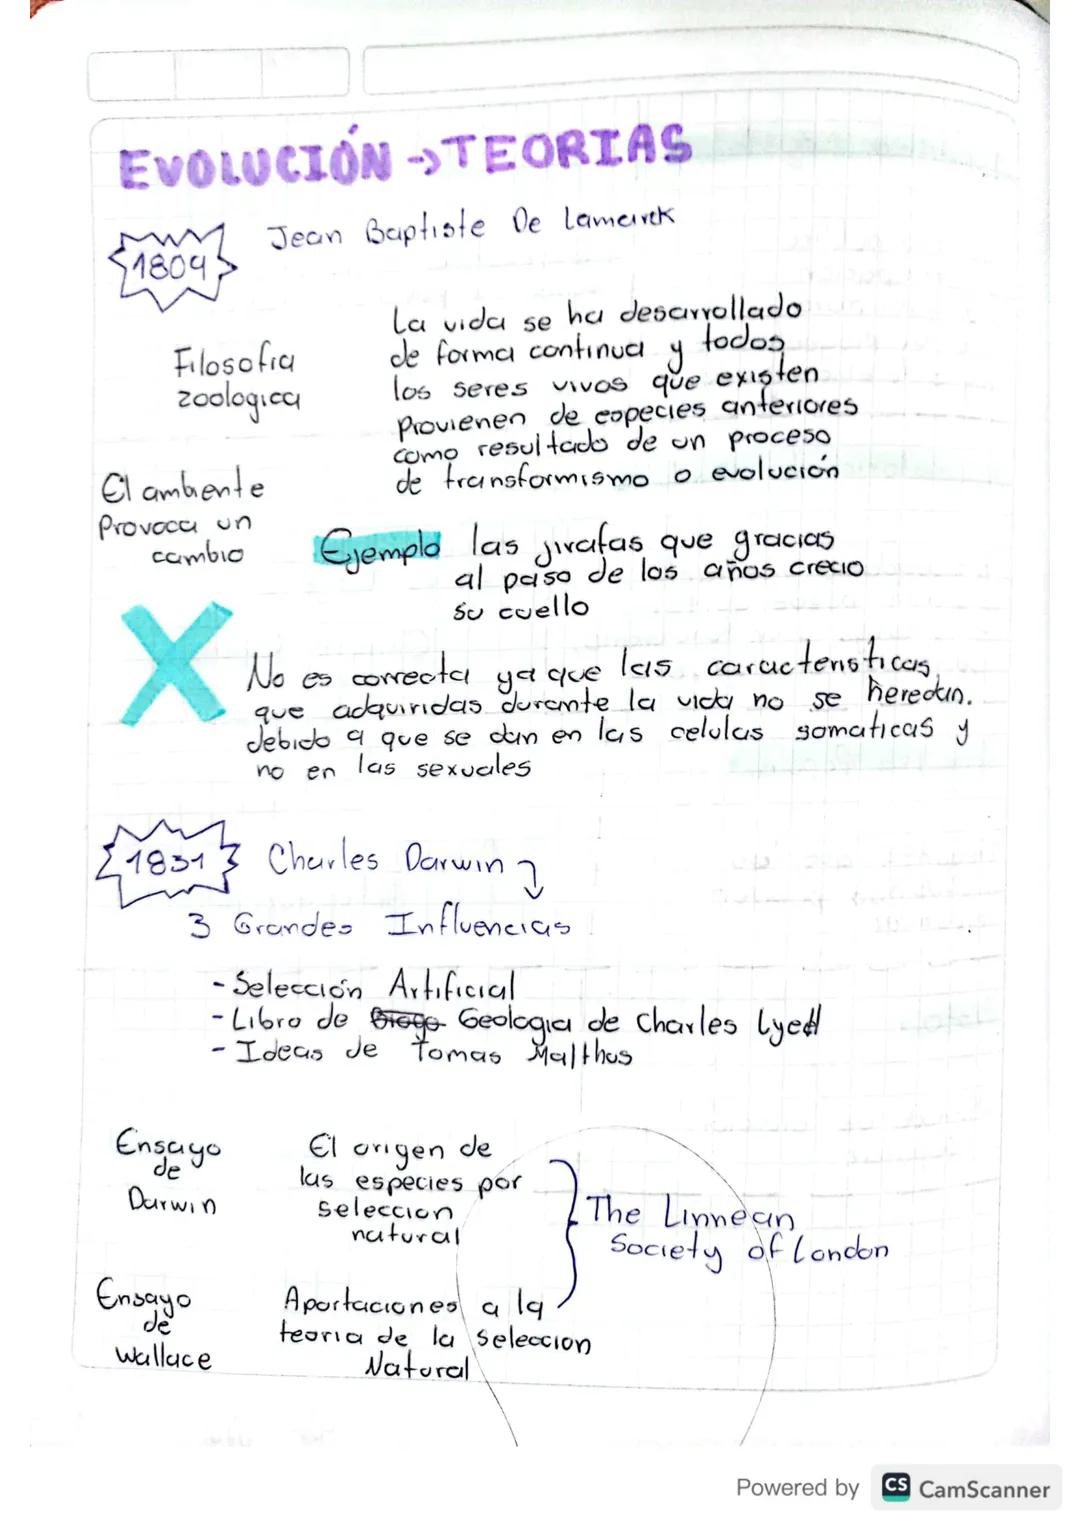 EVOLUCIÓN → TEORIAS
1809 Jean Baptiste De Lamarck
Filosofia
zoologica
La vida se ha desarrollado
de forma continua y todos
los seres vivos que existen
Provienen de especies anteriores
como resultado de un proceso
de transformismo o evolución
El ambiente
Provoca un
cambio
Ejemplo las jirafas que gracias
al paso de los años crecio
su cuello
X
No es correcta ya que las caracteristicas
que adquiridas durante la vida no se heredan.
debido a que se dan en las celulas somaticas y
no en las sexuales
1831 Charles Darwin
3 Grandes Influencias
- Selección Artificial
- Libro de Geologia de Charles Lyell
- Ideas de Tomas Malthus
Ensayo
de
Darwin
El origen de
las especies por
seleccion
natural
The Linnean
Society of London
Ensayo
de
Wallace
Aportaciones a la
teoria de la seleccion
Natural
Powered by CS CamScanner